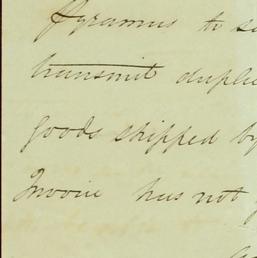 Pyramus to s
transmit duplic
goods shipped by
Invoice has not